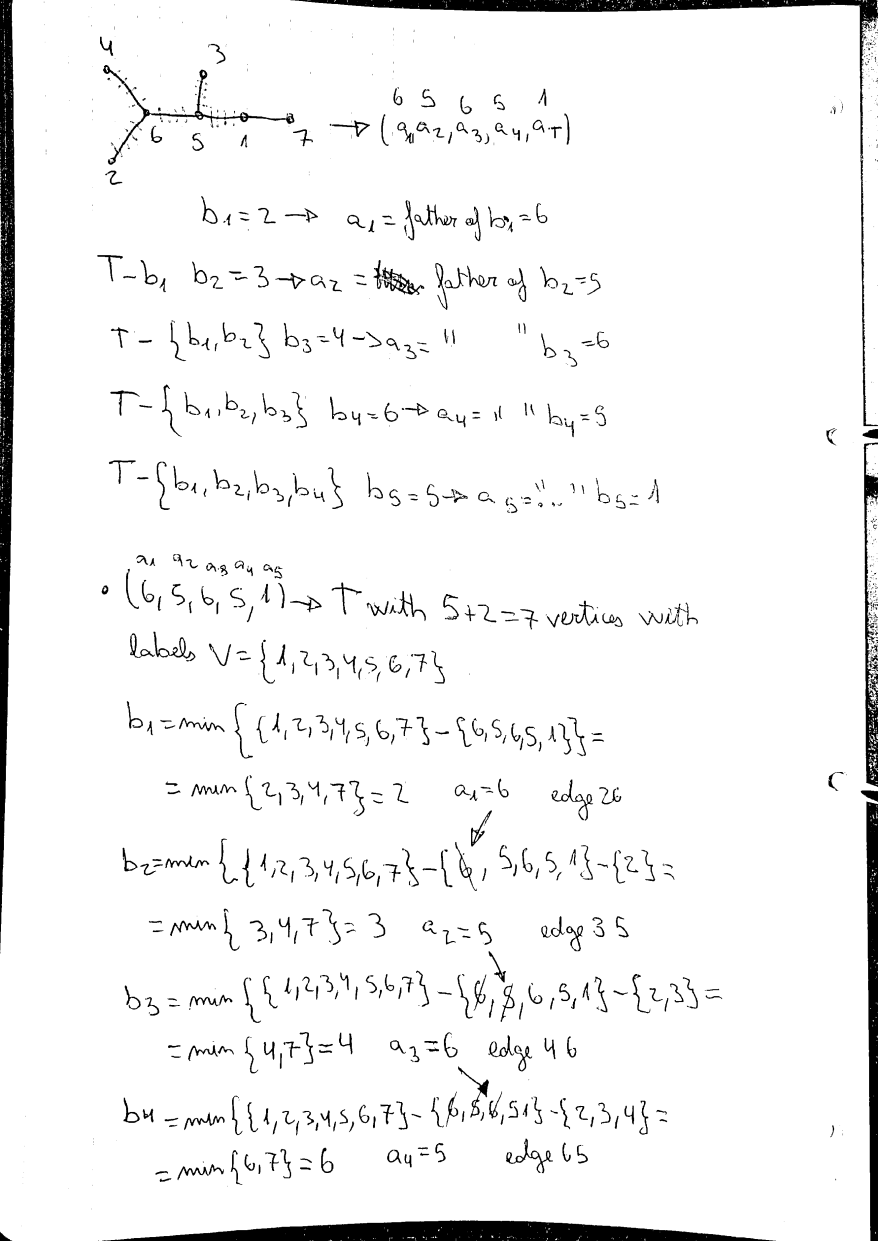 4
3
6 5 6 5 1
6 5 1 7 → (a1, a2, a3, a4, a5)
2
b1 = 2 → a1 = father of b1 = 6
T - b1 b2 = 3 → a2 = father of b2 = 5
T - {b1, b2} b3 = 4 → a3 = " " b3 = 6
T - {b1, b2, b3} b4 = 6 → a4 = " " b4 = 5
T - {b1, b2, b3, b4} b5 = 5 → a5 = ".." b5 = 1
a1 a2 a3 a4 a5
• (6, 5, 6, 5, 1) → T with 5+2=7 vertices with
labels V = {1, 2, 3, 4, 5, 6, 7}
b1 = min {{1, 2, 3, 4, 5, 6, 7} - {6, 5, 6, 5, 1}} =
= min {2, 3, 4, 7} = 2 a1 = 6 edge 26
b2 = min {{1, 2, 3, 4, 5, 6, 7} - {6, 5, 6, 5, 1} - {2} =
= min { 3, 4, 7} = 3 a2 = 5 edge 3 5
b3 = min {{1, 2, 3, 4, 5, 6, 7} - {6, 5, 6, 5, 1} - {2, 3} =
= min {4, 7} = 4 a3 = 6 edge 4 6
b4 = min {{1, 2, 3, 4, 5, 6, 7} - {6, 5, 6, 5 1} - {2, 3, 4} =
= min {6, 7} = 6 a4 = 5 edge 65